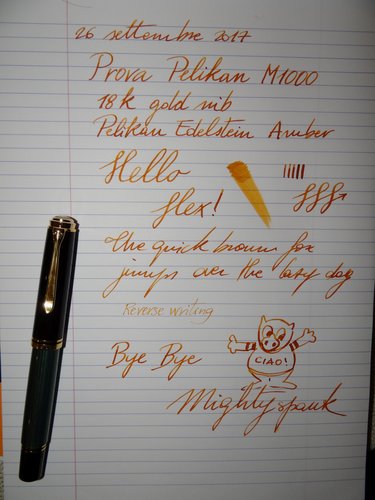 26 settembre 2017
Prova Pelikan M1000
18k gold nib
Pelikan Edelstein Amber
Hello
flex!
The quick brown fox
jumps over the lazy dog
Reverse writing
Bye Bye
CIAO!
Mightyspank